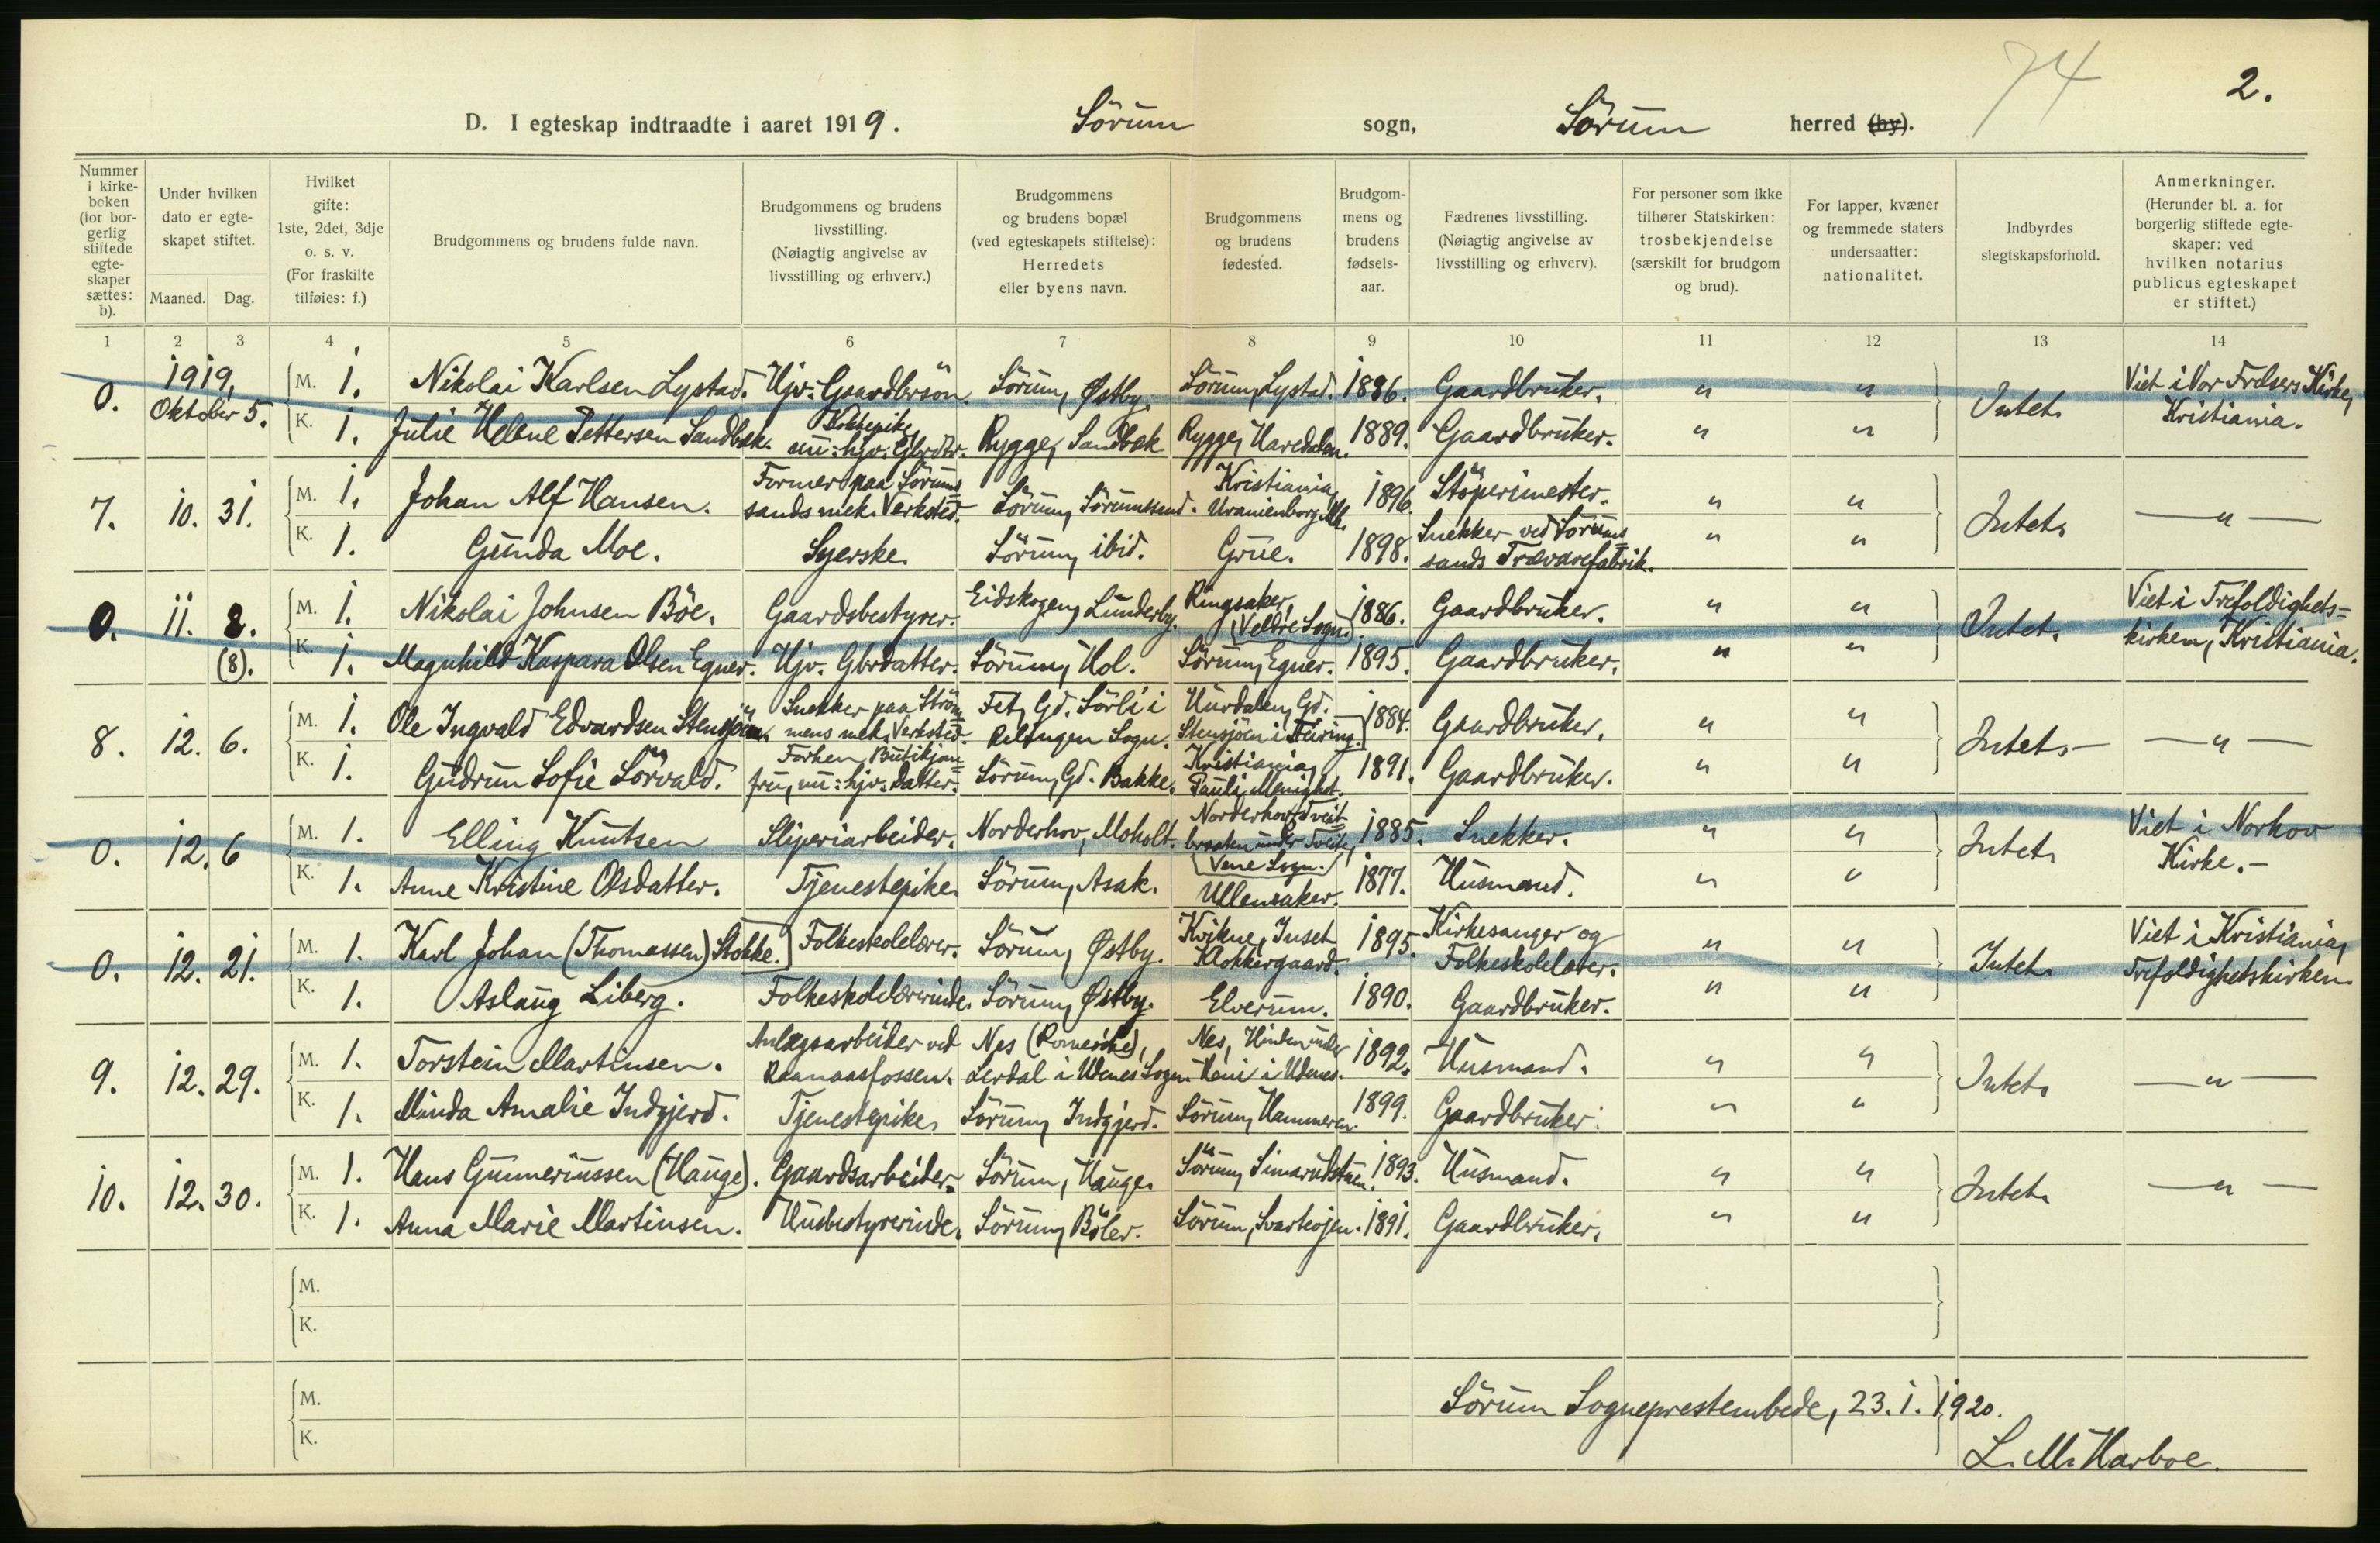 74
2.
D. I egteskap indtraadte i aaret 1919. Sörum sogn, Sörum herred (by).
Nummer i kirkeboken (for borgerlig stiftede egteskaper sættes: b).
Under hvilken dato er egteskapet stiftet.
Maaned. Dag.
Hvilket gifte: 1ste, 2det, 3dje o. s. v. (For fraskilte tilføies: f.)
Brudgommens og brudens fulde navn.
Brudgommens og brudens livsstilling. (Nøiagtig angivelse av livsstilling og erhverv.)
Brudgommens og brudens bopæl (ved egteskapets stiftelse): Herredets eller byens navn.
Brudgommens og brudens fødested.
Brudgommens og brudens fødselsaar.
Fædrenes livsstilling. (Nøiagtig angivelse av livsstilling og erhverv).
For personer som ikke tilhører Statskirken: trosbekjendelse (særskilt for brudgom og brud).
For lapper, kvæner og fremmede staters undersaatter: nationalitet.
Indbyrdes slegtskapsforhold.
Anmerkninger. (Herunder bl. a. for borgerlig stiftede egteskaper: ved hvilken notarius publicus egteskapet er stiftet.)
1 2 3 4 5 6 7 8 9 10 11 12 13 14
0. 1919, Oktober 5. M. 1. Nikolai Karlsen Lystad. Hjv: Gaardbrsön. Sörum, Østby. Sörum, Lystad. 1886. Gaardbruker. " " Intet. Viet i Vor Frelsers Kirke, Kristiania.
K. 1. Julie Helene Pettersen Sandbæk. nu: hjv: Gbrdtr. Rygge, Sandbæk Rygge, 1889. Gaardbruker. " "
7. 10. 31. M. 1. Johan Alf Hansen. Former paa Sörumsands mek. Verksted. Sörum, Sörumsand. Kristiania, Uranienborg Mh. 1896. Støperimester. " " Intet. — " —
K. 1. Gunda Moe. Syerske. Sörum, ibid. Grue. 1898. Snekker ved Sörumsands Trævarefabrik. " "
0. 11. 8. (8). M. 1. Nikolai Johnsen Böe. Gaardsbestyrer. Eidskogen, Lunderby. Ringsaker, (Veldre Sogn). 1886. Gaardbruker. " " Intet. Viet i Trefoldighetskirken, Kristiania.
K. 1. Magnhild Kaspara Olsen Egner. Hjv. Gbrdatter. Sörum, Hol. Sörum, Egner. 1895. Gaardbruker. " "
8. 12. 6. M. 1. Ole Ingvald Edvardsen Stensjöen. Snekker paa Strömmens mek. Verksted. Fet, Gd. Sörli i Relingen Sogn. Hurdalen, Gd. Stensjöen i Feiring. 1884. Gaardbruker. " " Intet. — " —
K. 1. Gudrun Sofie Sörvald. Forhen Butikjomfru, nu: hjv: Datter. Sörum, Gd. Bakke. Kristiania, Pauli Menighet. 1891. Gaardbruker. " "
0. 12. 6 M. 1. Elling Knutsen Sliperiarbeider. Norderhov, Moholt. Norderhov, Tveitbraaten under Tveite, (Vene Sogn.) 1885. Snekker. " " Intet. Viet i Norhov Kirke. –
K. 1. Anne Kristine Olsdatter. Tjenestepike. Sörum, Asak. Ullensaker. 1877. Husmand. " "
0. 12. 21. M. 1. Karl Johan (Thomassen) Stokke. Folkeskolelærer. Sörum, Østby. Kvikne, Inset Klokkergaard. 1895. Kirkesanger og Folkeskolelærer. " " Intet. Viet i Kristiania, Trefoldighetskirken.
K. 1. Aslaug Liberg. Folkeskolelærerinde. Sörum, Østby. Elverum. 1890. Gaardbruker. " "
9. 12. 29. M. 1. Torstein Martinsen. Anlægsarbeider ved Raanaasfossen. Nes (Romerike), Lerdal i Udenes Sogn. Nes, under i Udenes. 1892. Husmand. " " Intet. — " —
K. 1. Minda Amalie Indgjerd. Tjenestepike. Sörum, Indgjerd. Sörum, Hammeren. 1899. Gaardbruker. " "
10. 12. 30. M. 1. Hans Gunneriussen (Hauge). Gaardsarbeider. Sörum, Hauge. Sörum, 1893. Husmand. " " Intet. — " —
K. 1. Anna Marie Martinsen. Husbestyrerinde. Sörum, Böler. Sörum, 1891. Gaardbruker. " "
M.
K.
M.
K.
Sörum Sogneprestembede, 23. 1. 1920.
L. M. Harboe.